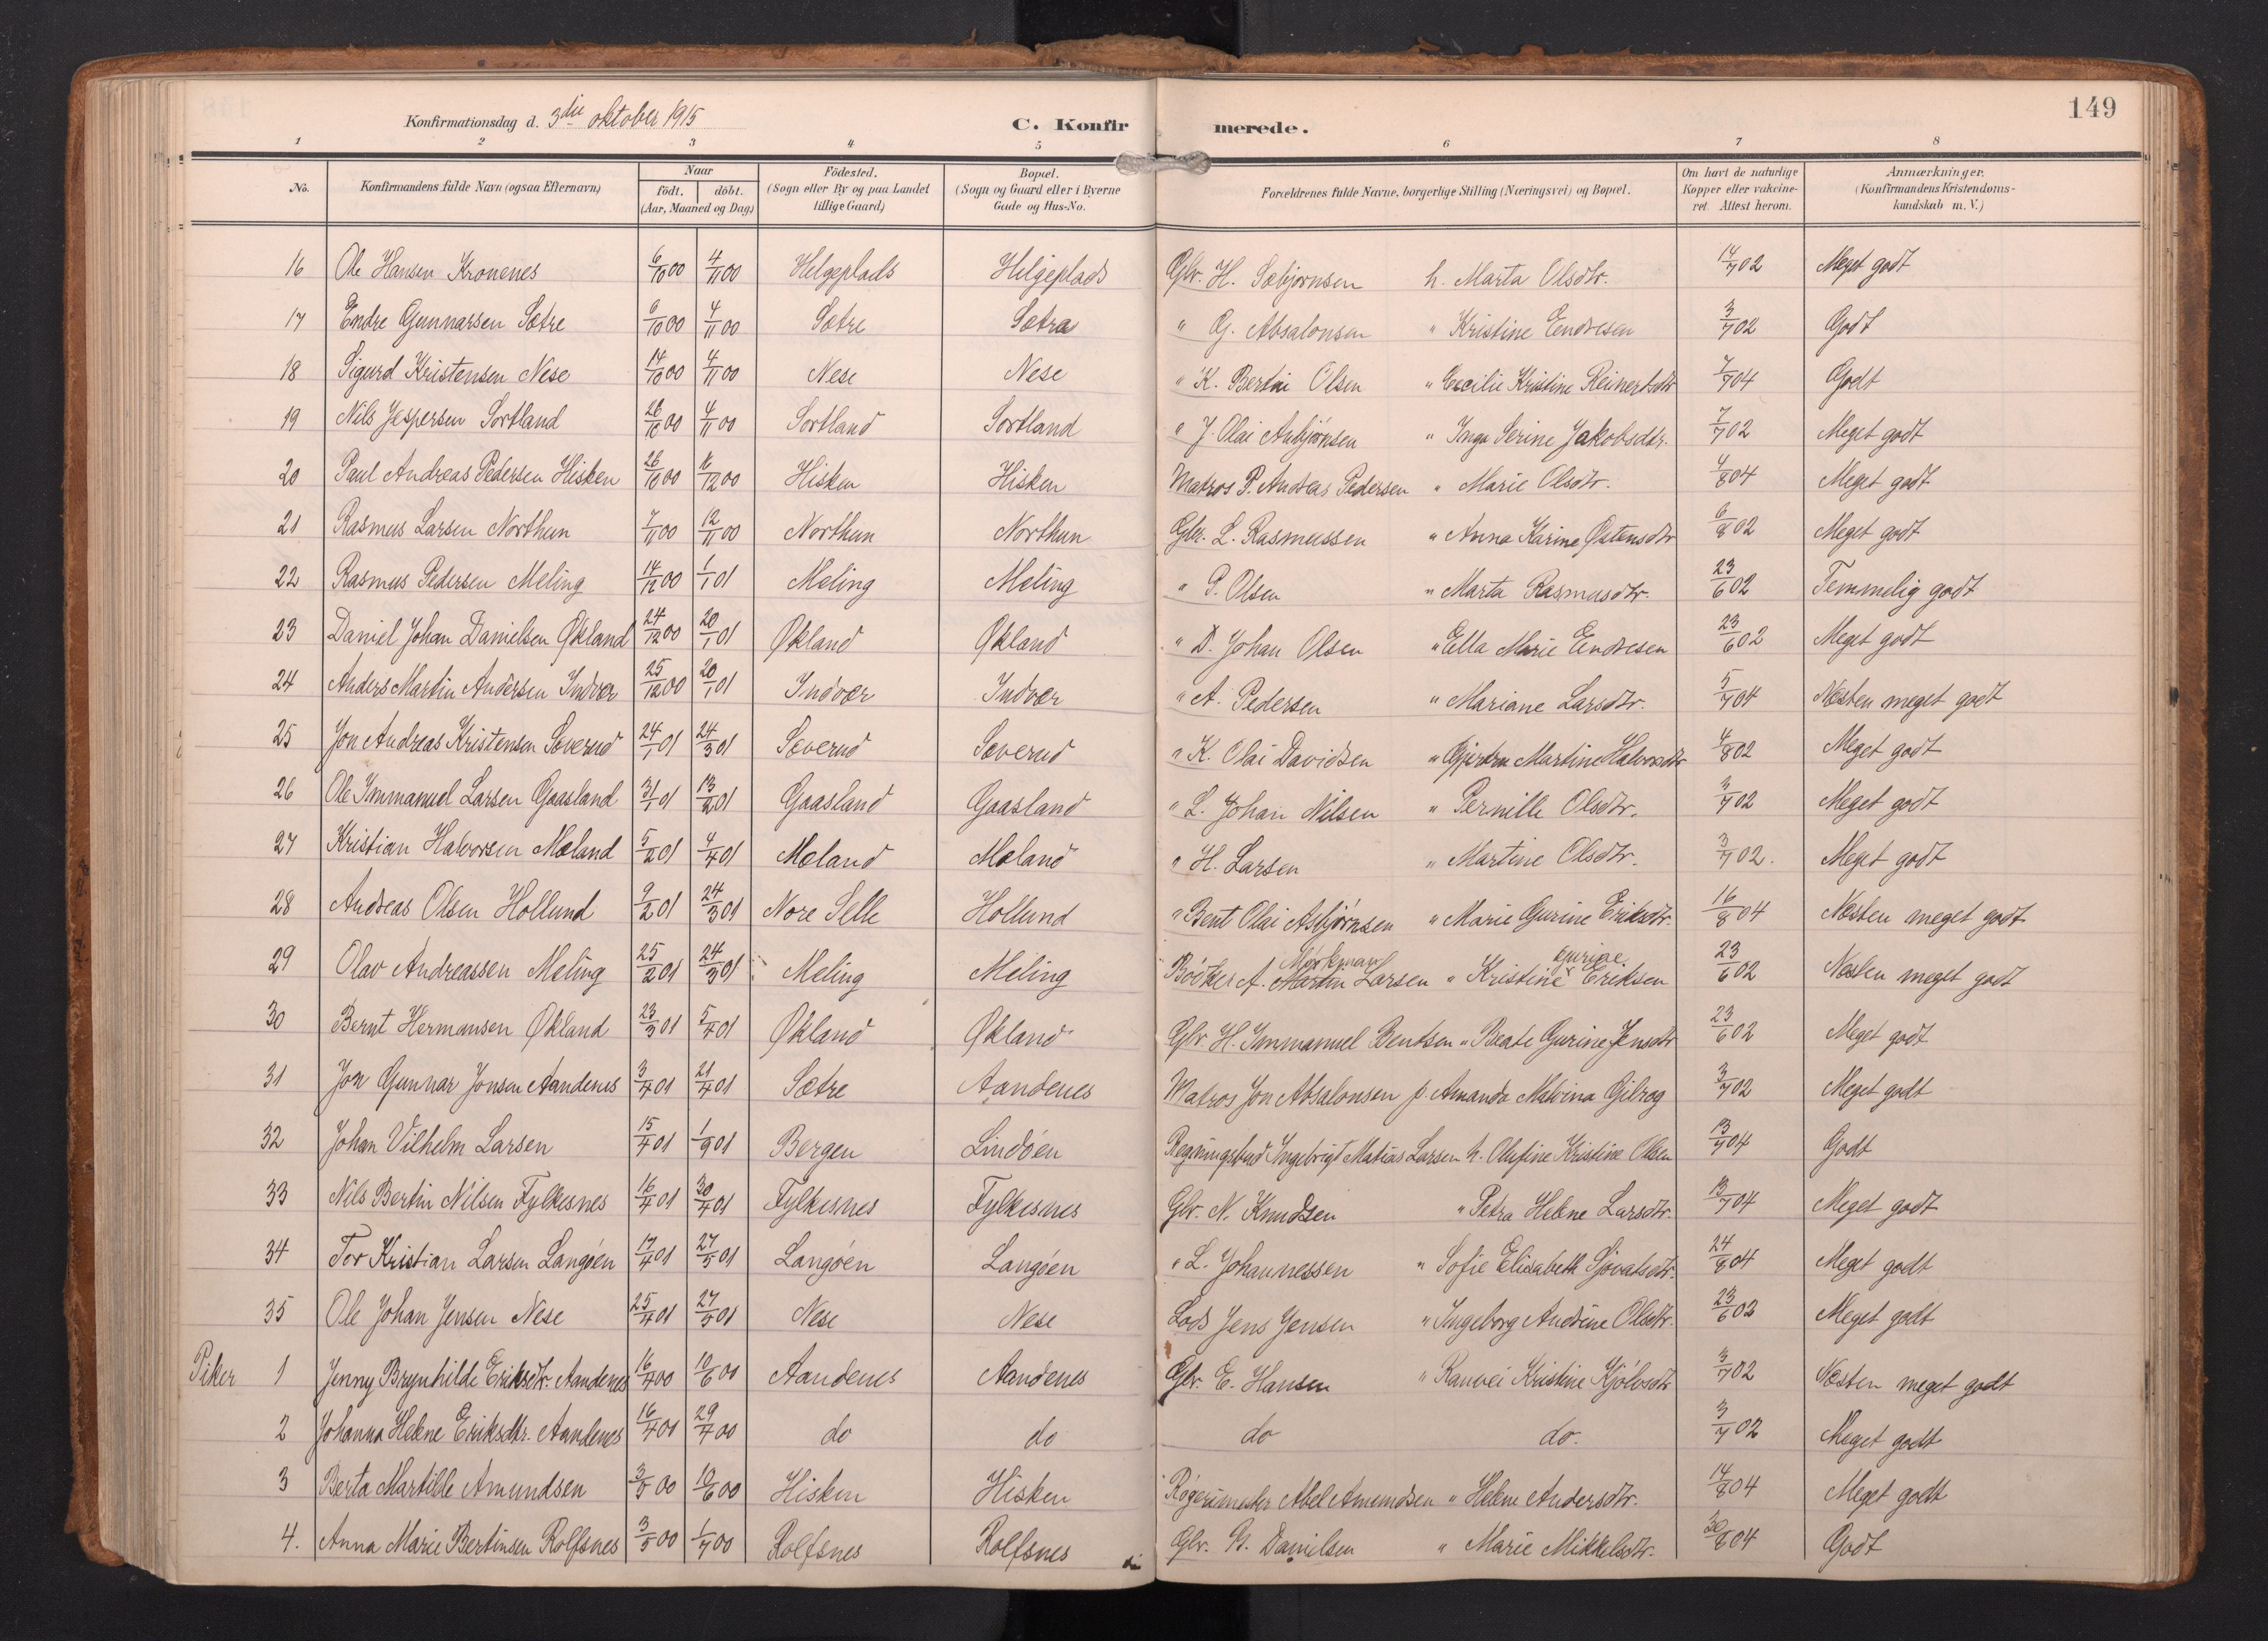 149
Konfirmationsdag d. 3die oktober 1915
C. Konfirmerede.
1 2 3 4 5 6 7 8
No. | Konfirmandens fulde Navn (ogsaa Efternavn) | Naar født. døbt. (Aar, Maaned og Dag) | Födested. (Sogn eller By og paa Landet tillige Gaard) | Bopæl. (Sogn og Gaard eller i Byerne Gade og Hus-No. | Forældrenes fulde Navne, borgerlige Stilling (Næringsvei) og Bopæl. | Om havt de naturlige Kopper eller vakcineret. Attest herom. | Anmærkninger. (Konfirmandens Kristendomskundskab m. V.)
16 Ole Hansen Kronenes 6/10 00 4/11 00 Helgeplads Helgeplads Gbr. H. Sæbjørnsen h. Marta Olsdtr. 14/7 02 Meget godt
17 Endre Gunnarsen Sætre 9/10 00 4/11 00 Sætre Sætra " G. Absalonsen " Kristine Endresen 3/7 02 Godt
18 Sigurd Kristensen Nese 14/10 00 4/11 00 Nese Nese " K. Bertin Olsen " Cecilie Kristine Reinertsdtr 7/7 04 Godt
19 Nils Jespersen Sortland 26/10 00 4/11 00 Sortland Sortland " J. Olai Anbjørnsen " Inga Serine Jakobsdtr. 7/7 02 Meget godt
20 Paul Andreas Pedersen Hisken 26/10 00 16/12 00 Hisken Hisken Matros P. Andreas Pedersen " Marie Olsdtr. 4/8 04 Meget godt
21 Rasmus Larsen Northun 7/11 00 12/11 00 Northun Northun Gbr. L. Rasmussen " Anna Karine Østensdtr 6/8 02 Meget godt
22 Rasmus Pedersen Meling 14/12 00 1/1 01 Meling Meling " P. Olsen " Marta Rasmusdtr. 23/6 02 Temmelig godt
23 Daniel Johan Danielsen Økland 24/12 00 20/1 01 Økland Økland " D. Johan Olsen " Ella Marie Endresen 23/6 02 Meget godt
24 Anders Martin Andersen Indvær 25/12 00 20/1 01 Indvær Indvær " A. Pedersen " Mariane Larsdtr. 5/7 04 Næsten meget godt
25 Jon Andreas Kristensen Sæverud 24/1 01 24/3 01 Sæverud Sæverud " K. Olai Davidsen " Martine Halvorsdtr 4/8 02 Meget godt
26 Ole Immanuel Larsen Gaasland 31/1 01 13/2 01 Gaasland Gaasland " L. Johan Nilsen " Pernille Olsdtr. 3/7 02 Meget godt
27 Kristian Halvorsen Mæland 5/2 01 4/4 01 Mæland Mæland " H. Larsen " Martine Olsdtr. 3/7 02. Meget godt
28 Andreas Olsen Hollund 9/2 01 24/3 01 Nore Selle Hollund " Bent Olai Asbjørnsen " Marie Gurine Eriksdtr. 16/8 04 Næsten meget godt
29 Olav Andreassen Meling 25/2 01 24/3 01 Meling Meling Bødker A. Martin Mørkman Larsen " Kristine Gurine Eriksen 23/6 02 Næsten meget godt
30 Bernt Hermansen Økland 23/3 01 5/4 01 Økland Økland Gbr. H. Immanuel Bentsen " Beate Gurine Jensdtr 23/6 02 Meget godt
31 Jon Gunnar Jonsen Aandenes 3/4 01 21/4 01 Sætre Aandenes Matros Jon Absalonsen p. Amanda Malvina Gilrog 3/7 02 Meget godt
32 Johan Vilhelm Larsen 15/4 01 1/9 01 Bergen Lindøen Regningsbud Ingebrigt Matias Larsen h. Olufine Kristine Olsen 13/7 04 Godt
33 Nils Bertin Nilsen Fylkesnes 16/4 01 30/4 01 Fylkesnes Fylkesnes Gbr. N. Knudsen " Petra Helene Larsdtr. 13/7 04 Meget godt
34 Tor Kristian Larsen Langøen 17/4 01 27/5 01 Langøen Langøen " L. Johannessen " Sofie Elisabeth Sjovatsdtr. 24/8 04 Meget godt
35 Ole Johan Jensen Nese 25/4 01 27/5 01 Nese Nese Lods Jens Jensen " Ingeborg Andrine Olsdtr. 23/6 02 Meget godt
Piker 1 Jenny Brynhilde Eriksdtr. Aandenes 16/4 00 10/6 00 Aandenes Aandenes Gbr. E. Hansen " Ranvei Kristine Kjølvsdtr 3/7 02 Næsten meget godt
2 Johanna Helene Eriksdtr. Aandenes 16/4 00 29/4 00 do do do do. 3/7 02 Meget godt
3 Berta Martilde Amundsen 3/5 00 10/6 00 Hisken Hisken Røgerimester Abel Amundsen " Helene Andersdtr. 14/8 04 Meget godt
4. Anna Marie Bertinsen Rolfsnes 3/5 00 1/7 00 Rolfsnes Rolfsnes Gbr. B. Danielsen " Marie Mikkelsdtr. 30/8 04 Godt